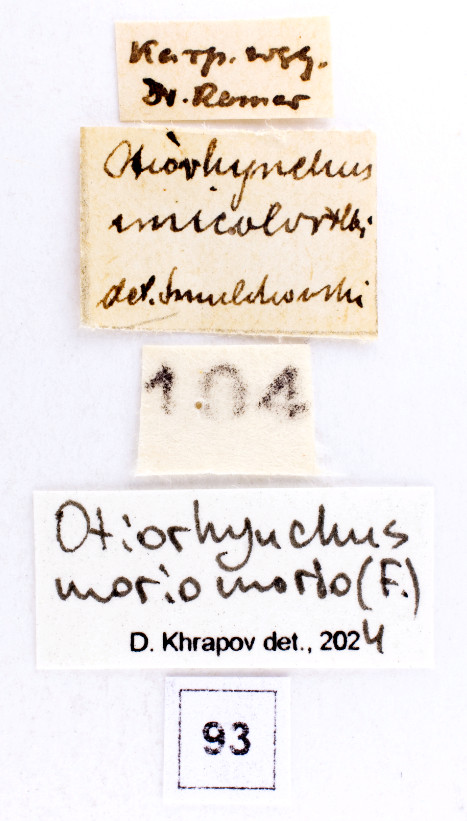 Karp. wsg.
Dr. Remer
Otiorhynchus
unicolor Hbs
det.
104
Otiorhynchus
morio morio (F.)
D. Khrapov det., 2024
93